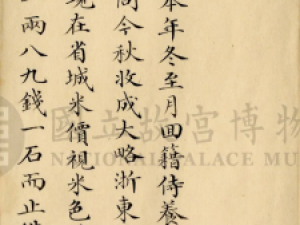 本年冬至月回籍侍養
間今秋收成大略浙東
現在省城米價視米色
兩八九錢一石而止
國立故宮博物
NATIONAL PALACE MU